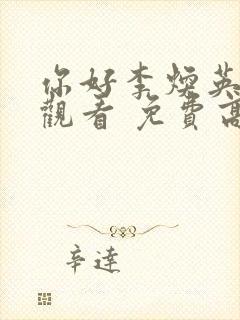 你好李焕英
觀看 免費高
辛達